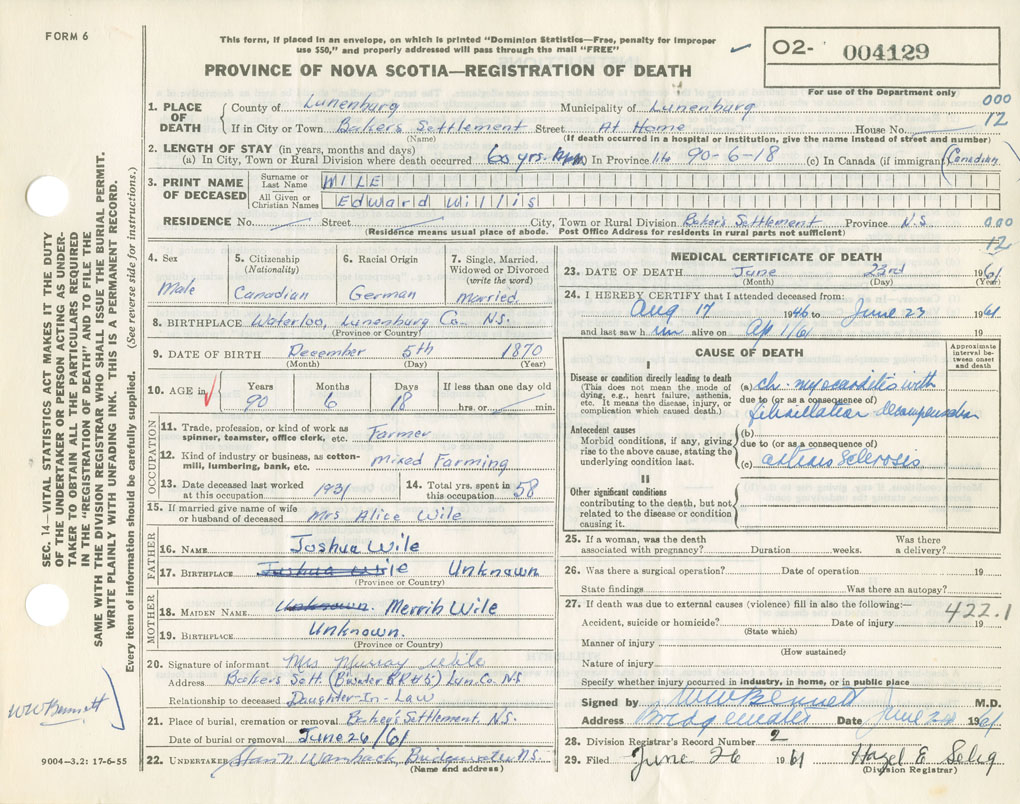 FORM 6
This form, if placed in an envelope, on which is printed "Dominion Statistics—Free, penalty for improper
use $50," and properly addressed will pass through the mail "FREE"
PROVINCE OF NOVA SCOTIA—REGISTRATION OF DEATH
O2- 004129
For use of the Department only
000
12
1. PLACE OF DEATH County of Lunenburg Municipality of Lunenburg
If in City or Town Baker's Settlement Street At Home House No.
(Name) (If death occurred in a hospital or institution, give the name instead of street and number)
2. LENGTH OF STAY (in years, months and days)
(a) In City, Town or Rural Division where death occurred 60 yrs. In Province life 90-6-18 (c) In Canada (if immigrant) Canadian
3. PRINT NAME OF DECEASED
Surname or Last Name WILE
All Given or Christian Names Edward Willis
RESIDENCE No. Street City, Town or Rural Division Baker's Settlement Province N.S.
(Residence means usual place of abode. Post Office Address for residents in rural parts not sufficient)
000
12
4. Sex Male
5. Citizenship (Nationality) Canadian
6. Racial Origin German
7. Single, Married, Widowed or Divorced (write the word) Married
8. BIRTHPLACE Waterloo, Lunenburg Co. N.S.
(Province or Country)
9. DATE OF BIRTH December 5th 1870
(Month) (Day) (Year)
10. AGE in Years 90 Months 6 Days 18 If less than one day old hrs. or min.
OCCUPATION
11. Trade, profession, or kind of work as spinner, teamster, office clerk, etc. Farmer
12. Kind of industry or business, as cotton-mill, lumbering, bank, etc. Mixed Farming
13. Date deceased last worked at this occupation 1931
14. Total yrs. spent in this occupation 58
15. If married give name of wife or husband of deceased Mrs Alice Wile
FATHER
16. NAME Joshua Wile
17. BIRTHPLACE Joshua Wile Unknown
(Province or Country)
MOTHER
18. MAIDEN NAME Unknown. Merrib Wile
19. BIRTHPLACE Unknown.
(Province or Country)
20. Signature of informant Mrs Murray Wile
Address Bakers Sett. (B'water RR#5) Lun. Co. N.S.
Relationship to deceased Daughter-In-Law
21. Place of burial, cremation or removal Baker's Settlement, N.S.
Date of burial or removal June 26/61
22. UNDERTAKER Bridgewater N.S.
(Name and address)
MEDICAL CERTIFICATE OF DEATH
23. DATE OF DEATH June 23rd 1961
(Month) (Day) (Year)
24. I HEREBY CERTIFY that I attended deceased from:
Aug 17 1946 to June 23 1961
and last saw him alive on Ap 1/61 19
CAUSE OF DEATH
Approximate interval between onset and death
I
Disease or condition directly leading to death
(This does not mean the mode of dying, e.g., heart failure, asthenia, etc. It means the disease, injury, or complication which caused death.)
(a) ch. myocarditis with
due to (or as a consequence of)
fibrillation decompensation
Antecedent causes
Morbid conditions, if any, giving rise to the above cause, stating the underlying condition last.
(b)
due to (or as a consequence of)
(c) arteriosclerosis
II
Other significant conditions
contributing to the death, but not related to the disease or condition causing it.
25. If a woman, was the death associated with pregnancy? Duration weeks. Was there a delivery?
26. Was there a surgical operation? Date of operation 19
State findings Was there an autopsy?
27. If death was due to external causes (violence) fill in also the following:—
422.1
Accident, suicide or homicide? Date of injury 19
(State which)
Manner of injury
(How sustained)
Nature of injury
Specify whether injury occurred in industry, in home, or in public place
Signed by WW Bennett M.D.
Address Bridgewater Date June 1961
28. Division Registrar's Record Number 2
29. Filed June 26 1961 Hazel E Selig
(Division Registrar)
SEC. 14—VITAL STATISTICS ACT MAKES IT THE DUTY
OF THE UNDERTAKER OR PERSON ACTING AS UNDER-
TAKER TO OBTAIN ALL THE PARTICULARS REQUIRED
IN THE "REGISTRATION OF DEATH" AND TO FILE THE
SAME WITH THE DIVISION REGISTRAR WHO SHALL ISSUE THE BURIAL PERMIT.
WRITE PLAINLY WITH UNFADING INK. THIS IS A PERMANENT RECORD.
Every item of information should be carefully supplied. (See reverse side for instructions.)
WW Bennett
9004-3.2: 17-6-55